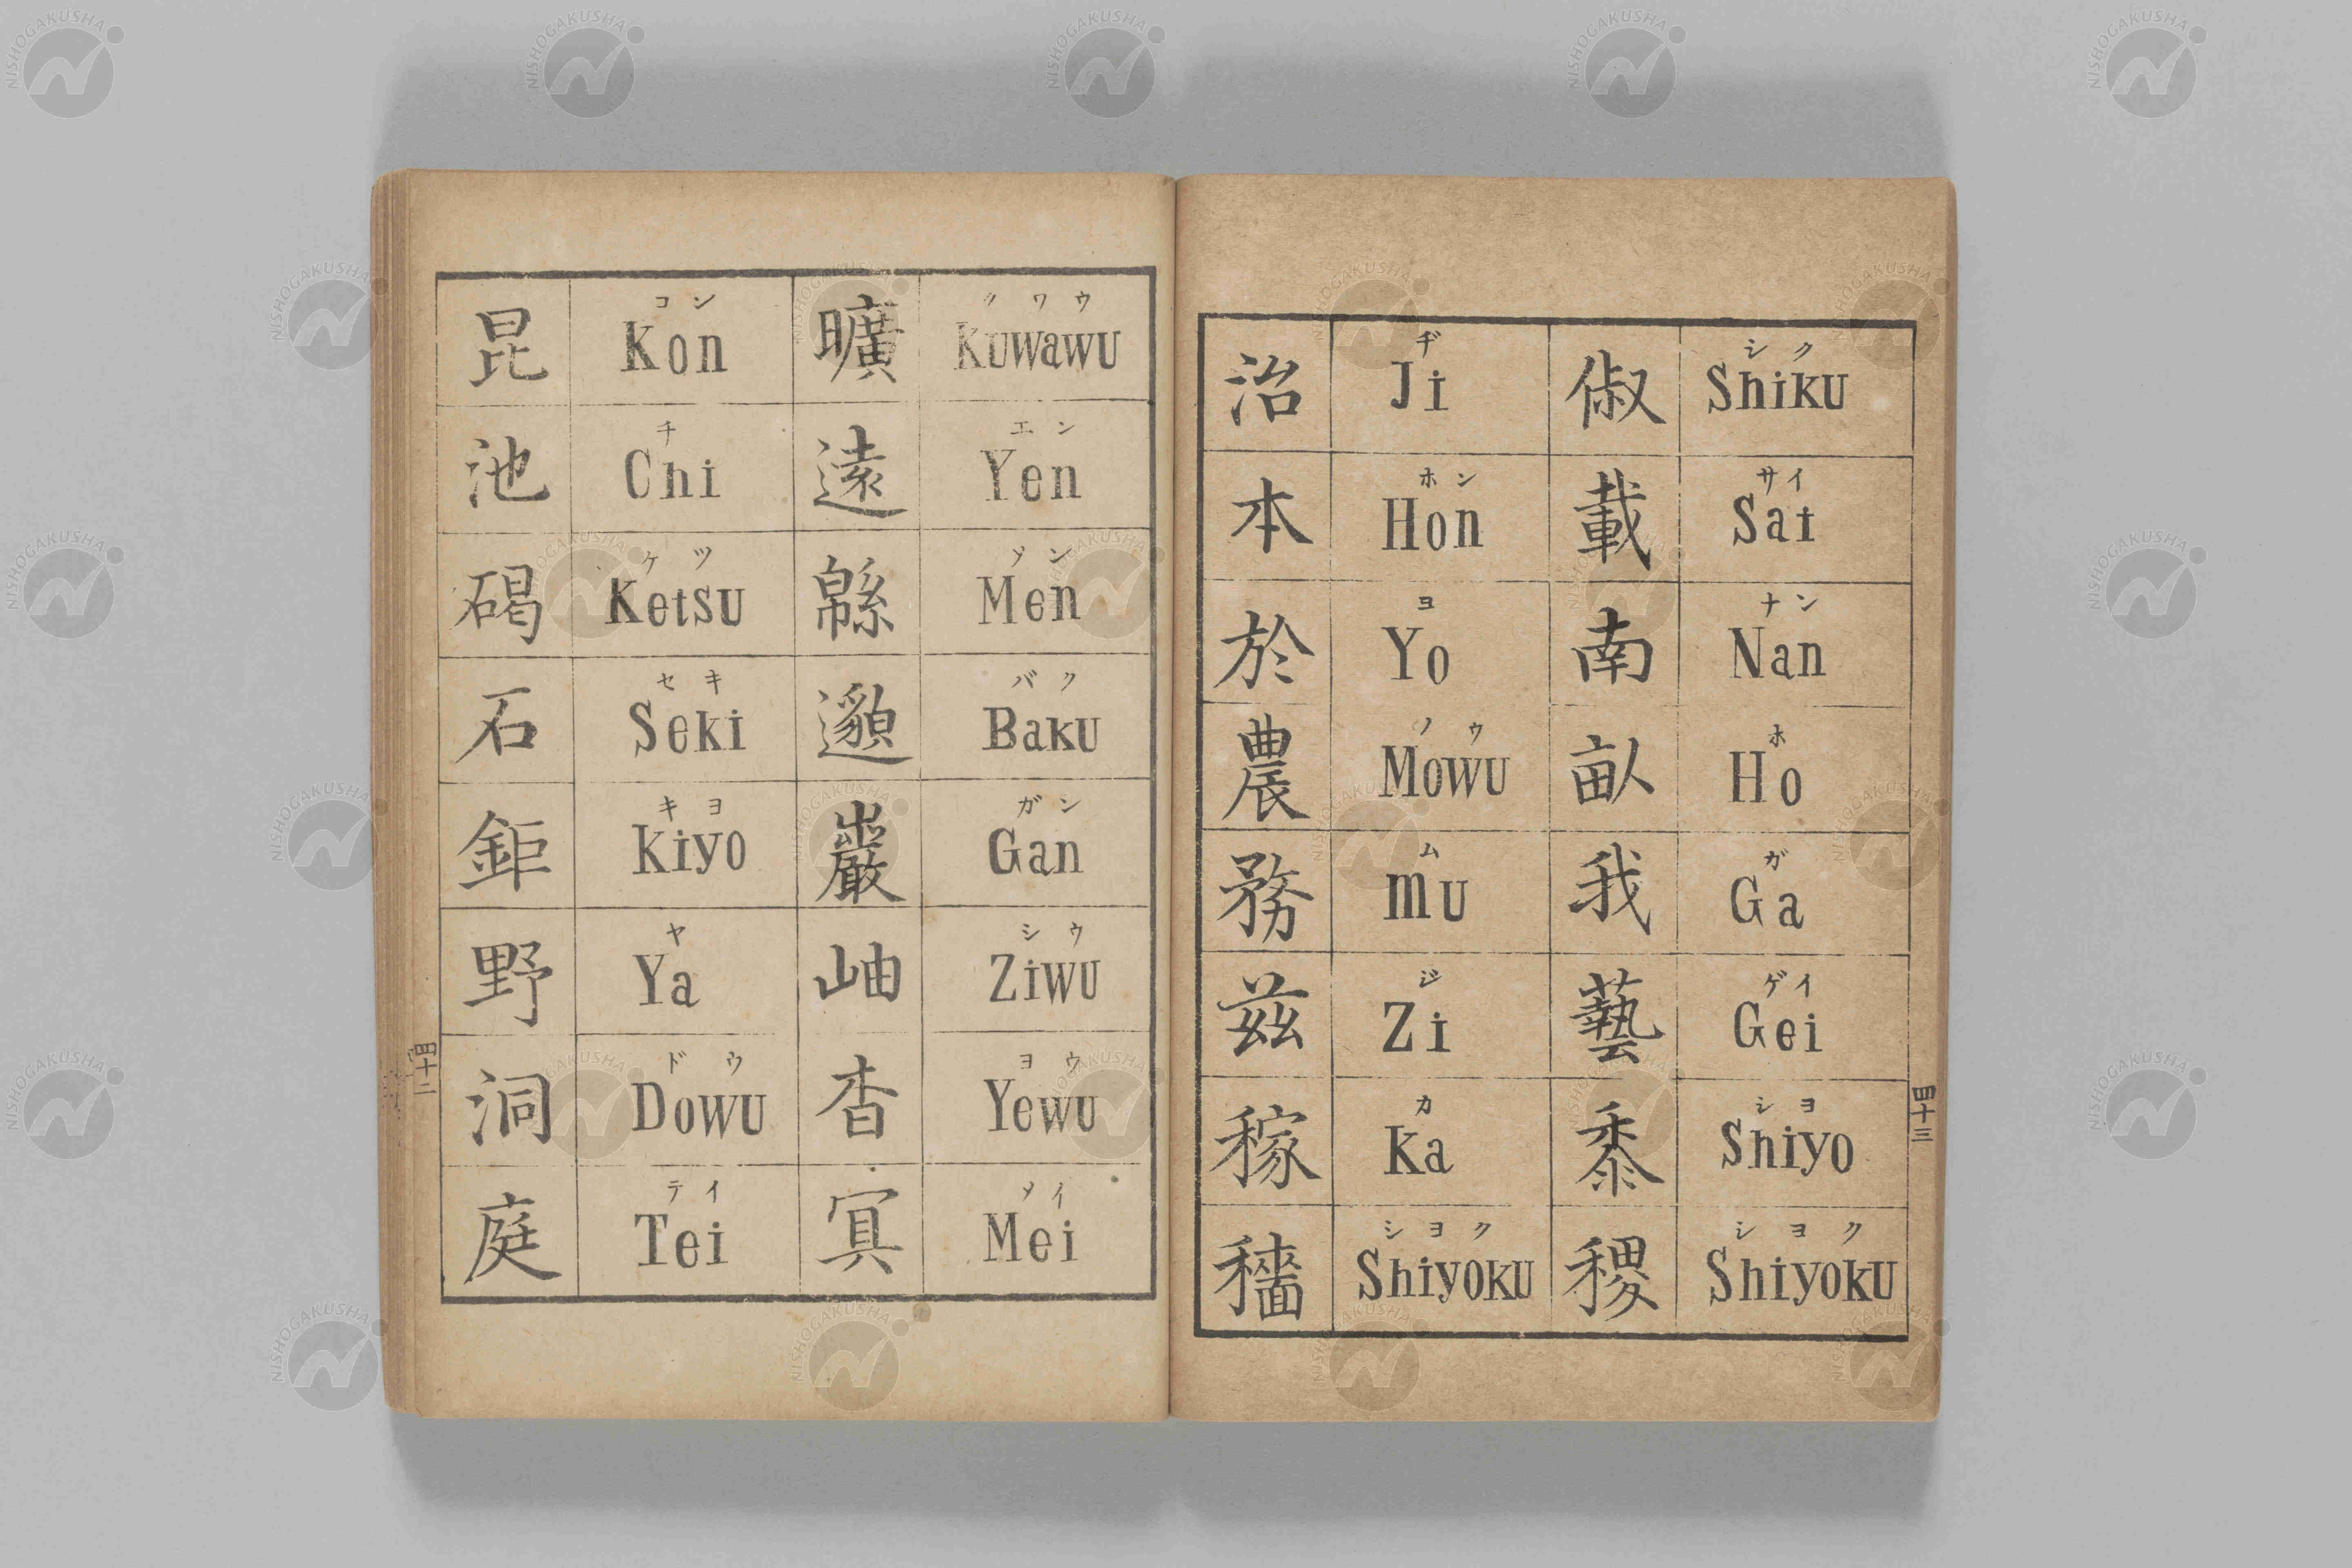 昆 コン Kon
池 チ Chi
碣 ケツ Ketsu
石 セキ Seki
鉅 キヨ Kiyo
野 ヤ Ya
洞 ドウ Dowu
庭 テイ Tei
曠 クワウ Kuwawu
遠 エン Yen
緜 メン Men
邈 バク Baku
巖 ガン Gan
岫 シウ Ziwu
杳 ヨウ Yewu
冥 メイ Mei
四十二
治 ヂ Ji
本 ホン Hon
於 ヨ Yo
農 ノウ Mowu
務 ム mu
茲 ジ Zi
稼 カ Ka
穡 シヨク Shiyoku
俶 シク Shiku
載 サイ Sai
南 ナン Nan
畆 ホ Ho
我 ガ Ga
藝 ゲイ Gei
黍 シヨ Shiyo
稷 シヨク Shiyoku
四十三
NISHOGAKUSHA